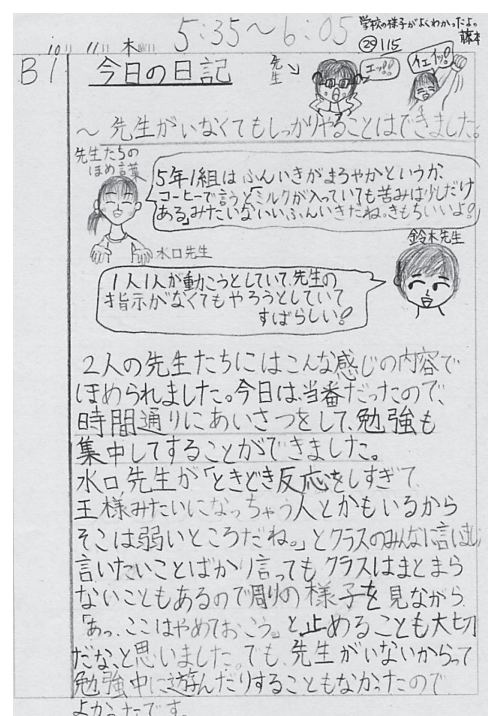 5:35〜6:05
学校の様子がよくわかったよ。
藤本
㉙115
10 11 木
B1
今日の日記
先生
エッ!!
イエイッ!
〜先生がいなくてもしっかりやることはできました。
先生たちの
ほめ言葉
5年1組はふんいきがまろやかというか、
コーヒーで言うと「ミルクが入っていても苦みは少しだけ
ある」みたいないいふんいきだね。きもちいいよ!
水口先生
鈴木先生
1人1人が動こうとしていて、先生の
指示がなくてもやろうとしていて
すばらしい!
2人の先生たちにはこんな感じの内容で
ほめられました。今日は、当番だったので、
時間通りにあいさつをして、勉強も
集中してすることができました。
水口先生が「ときどき反応をしすぎて、
王様みたいになっちゃう人とかもいるから
そこは弱いところだね。」とクラスのみんなに言いました
言いたいことばかり言ってもクラスはまとまら
ないこともあるので周りの様子を見ながら、
「あっ、ここはやめておこう。」と、止めることも大切
だな、と思いました。でも、先生がいないからって
勉強中に遊んだりすることもなかったので
よかったです。